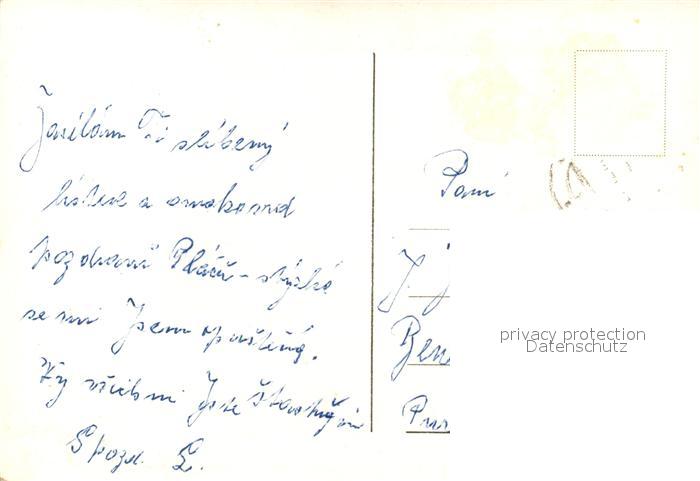 Zasílám Ti slíbený
lístek a
pozdrav! Pláču - stýská
se mi Jsem opuštěná.
Vy všichni jste šťastnější
S pozd. L.
Paní
J.
Ben
privacy protection
Datenschutz